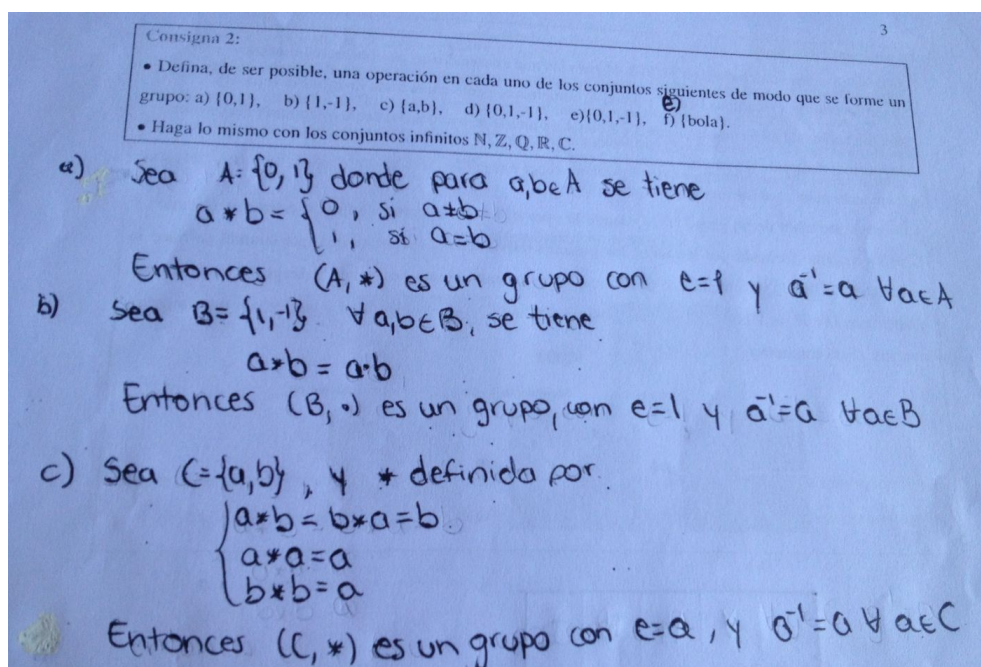 3
Consigna 2:
• Defina, de ser posible, una operación en cada uno de los conjuntos siguientes de modo que se forme un
grupo: a) {0,1}, b) {1,-1}, c) {a,b}, d) {0,1,-1}, e){0,1,-1}, e) f) {bola}.
• Haga lo mismo con los conjuntos infinitos ℕ, ℤ, ℚ, ℝ, ℂ.
a) Sea A= {0,1} donde para a,b∈A se tiene
a * b = { 0, si a≠b
1, si a=b
Entonces (A,*) es un grupo con e=1 y a⁻¹=a ∀a∈A
b) Sea B= {1,-1} ∀ a,b∈B, se tiene
a*b = a·b
Entonces (B, ·) es un grupo, con e=1 y a⁻¹=a ∀a∈B
c) Sea C={a,b}, y * definida por
{ a*b = b*a = b
a*a=a
b*b=a
Entonces (C, *) es un grupo con e=a, y a⁻¹=a ∀ a∈C